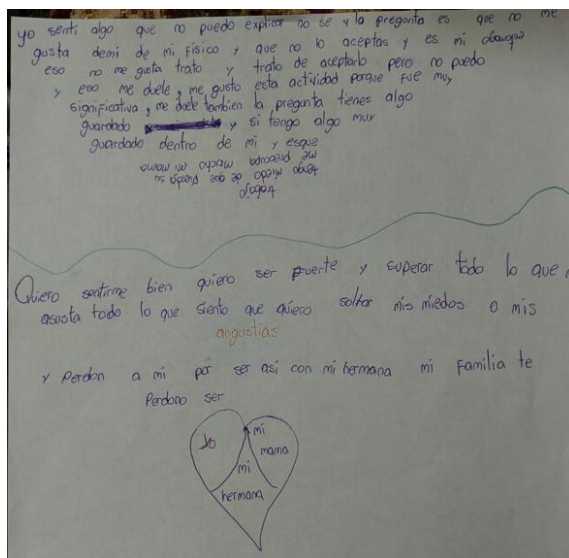 yo senti algo que no puedo explicar no se y la pregunta es que no me
gusta demi de mi físico y que no lo aceptas y es mi
eso no me gusta trato y trato de aceptarlo pero no puedo
y eso me duele, me gusto esta actividad porque fue muy
significativa, me duele tambien la pregunta tienes algo
guardado y si tengo algo muy
guardado dentro de mi y esque
me preocupa mucho mi mama
tengo miedo de que pierda su
trabajo
Quiero sentirme bien quiero ser fuerte y superar todo lo que
asusta todo lo que siento que quiero soltar mis miedos o mis
angustias
y Perdon a mi por ser asi con mi hermana mi Familia te
Perdono ser
yo
mi
mama
mi
hermana